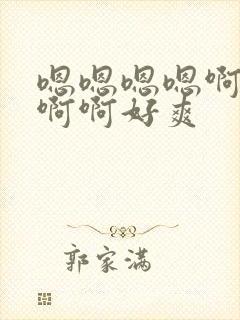 嗯嗯嗯嗯啊
啊啊好爽
郭家满